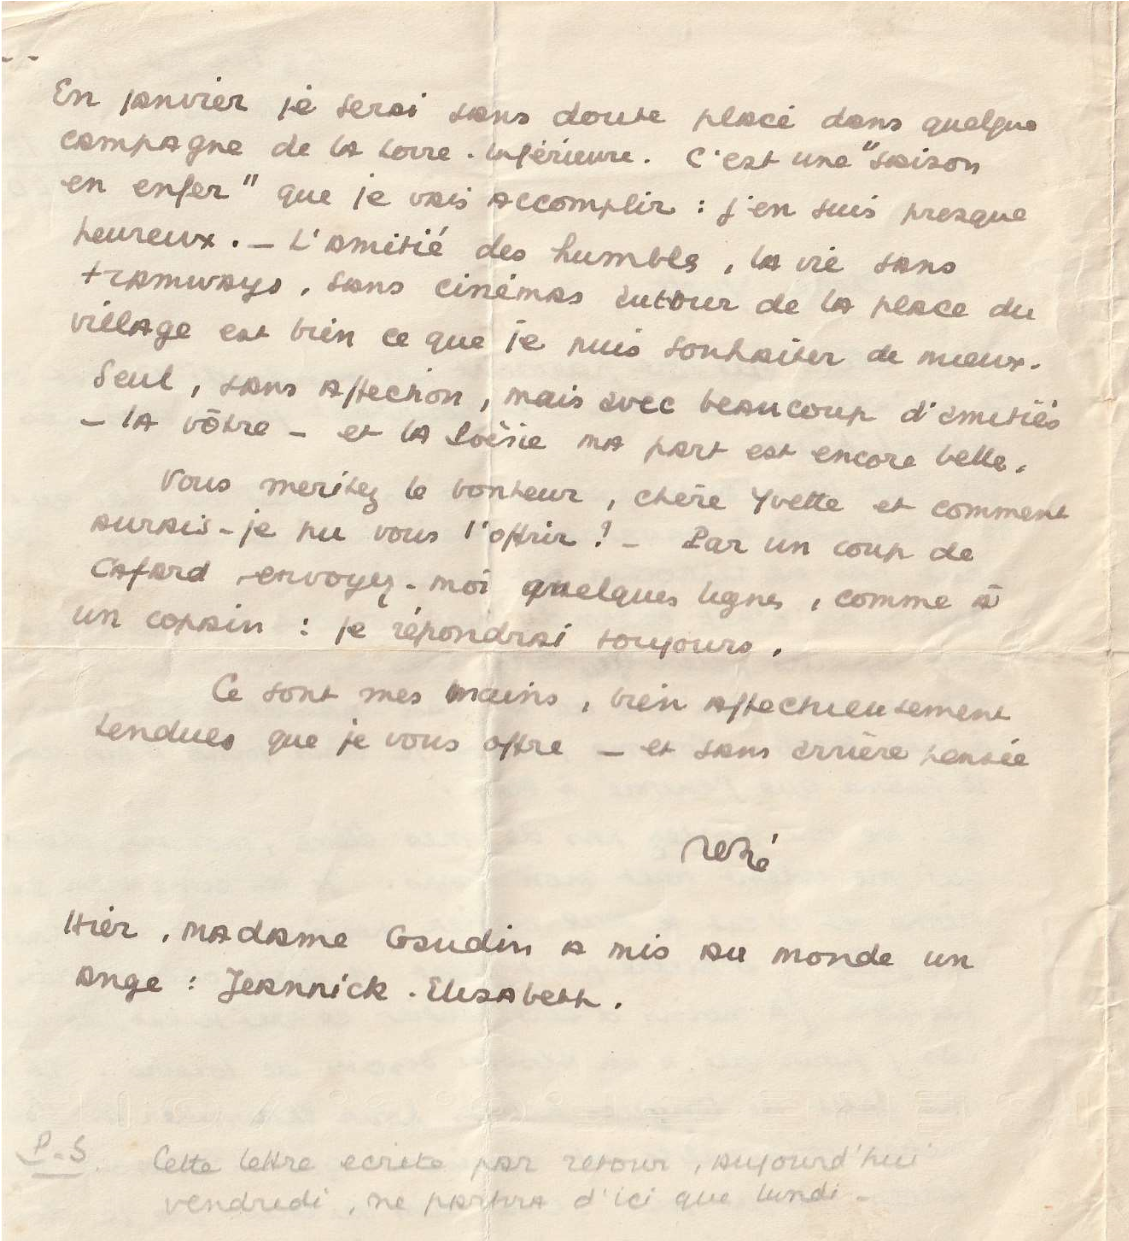 En janvier je serai sans doute placé dans quelque
campagne de la Loire-Inférieure. C'est une "saison
en enfer" que je vais accomplir : j'en suis presque
heureux. — L'amitié des humbles, la vie sans
tramways, sans cinémas autour de la place du
village est bien ce que je puis souhaiter de mieux.
Seul, sans affection, mais avec beaucoup d'amitiés
— la vôtre — et la Poësie ma part est encore belle.
Vous meritez le bonheur, chère Yvette et comment
aurais-je pu vous l'offrir ! — Par un coup de
Cafard envoyez-moi quelques lignes, comme à
un copain : je répondrai toujours.
Ce sont mes mains, bien affectueusement
tendues que je vous offre — et sans arrière pensée
René
Hier, Madame Gaudin a mis au monde un
ange : Jeannick-Elisabeth.
P.S. Cette lettre ecrite par retour, aujourd'hui
vendredi, ne partira d'ici que lundi —